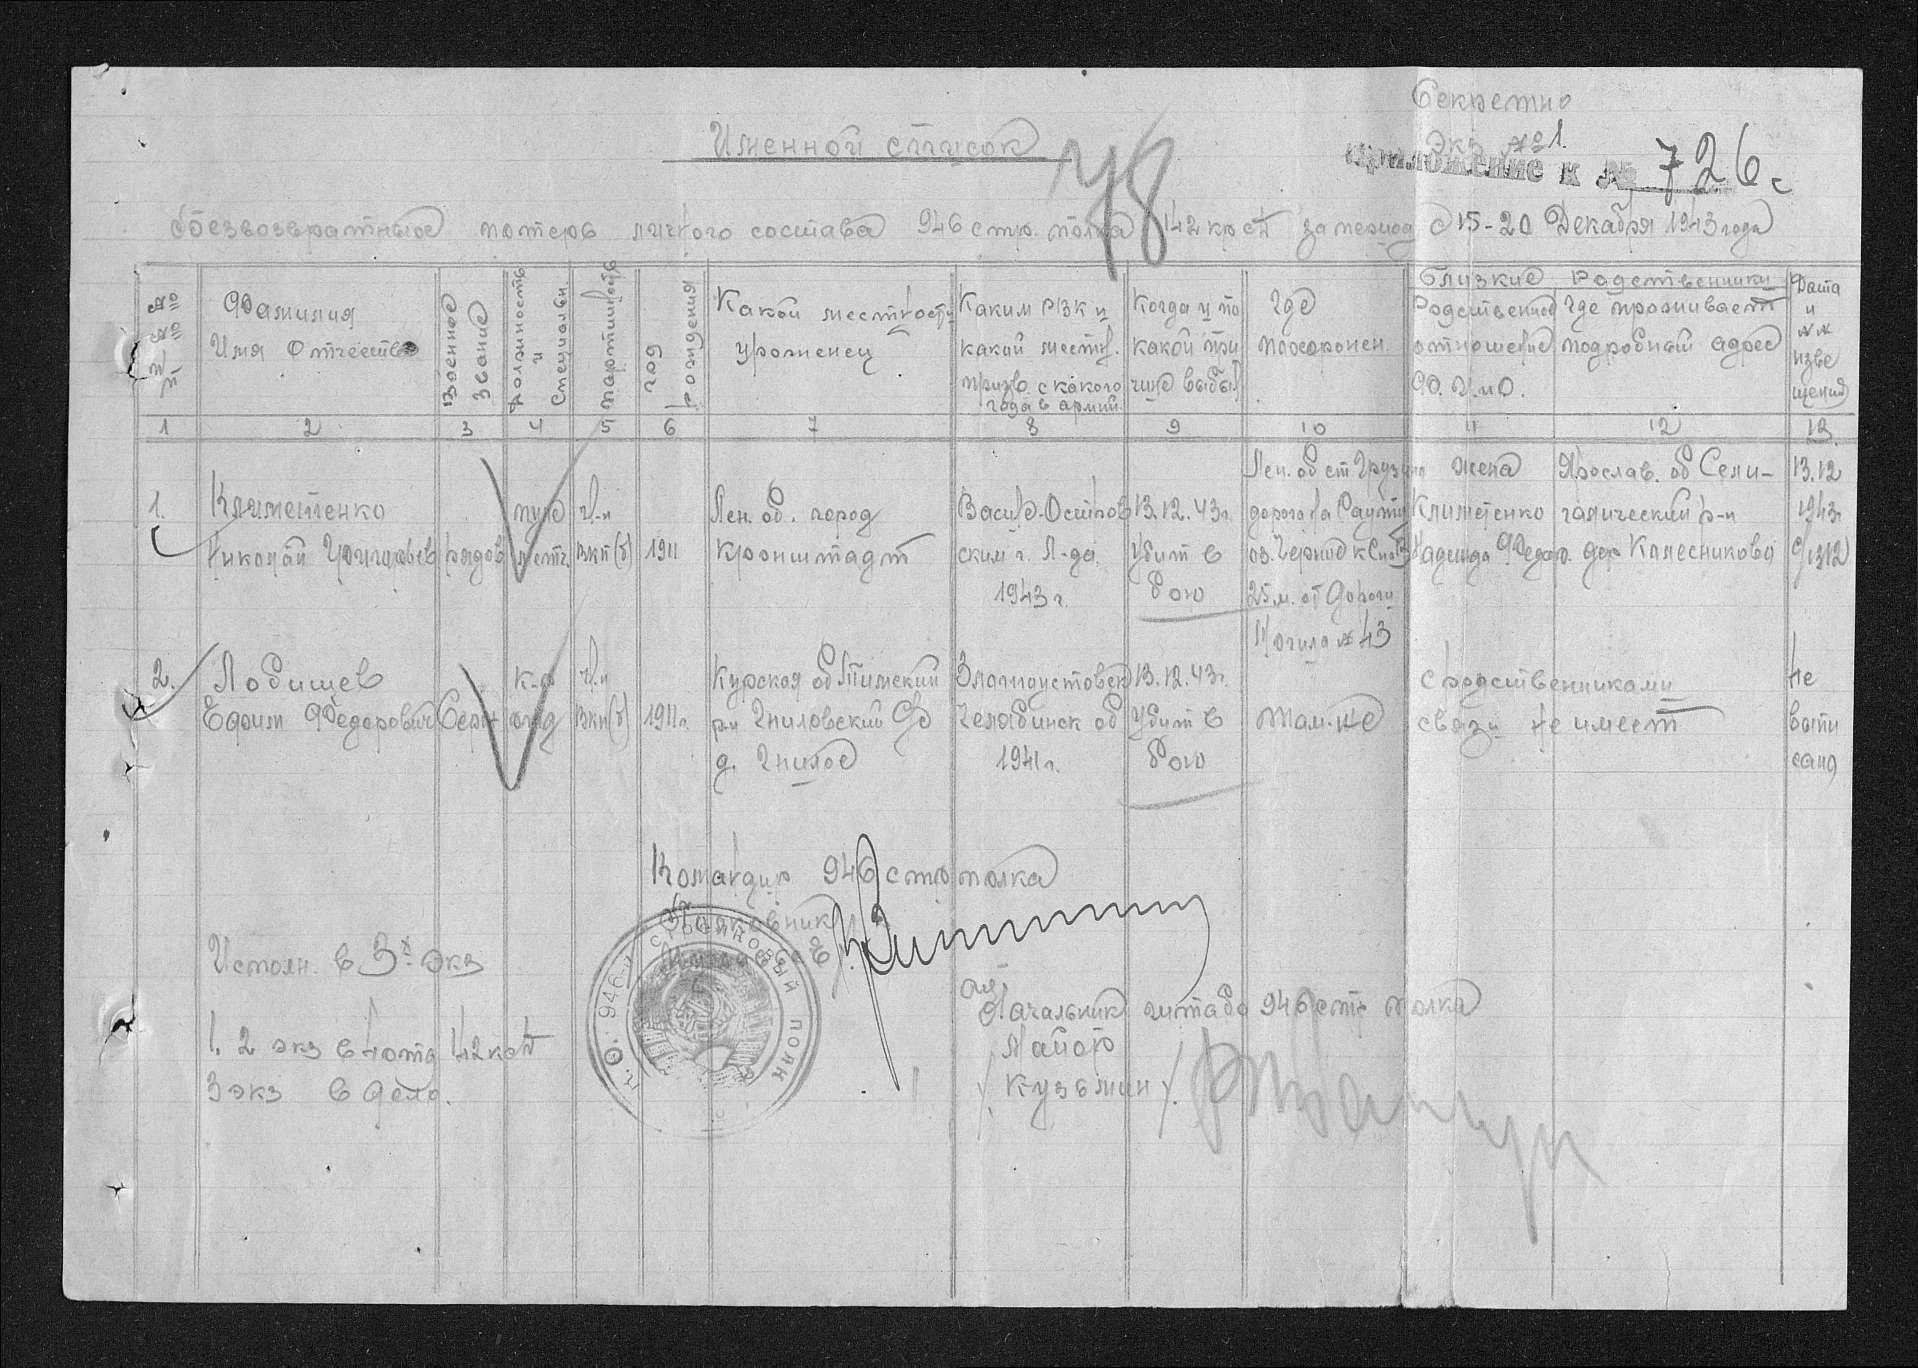 Секретно
Экз №1.
Именной список
Приложение к № 726с
безвозвратные потерь личного состава 946 стр. полка 142 крсд за период с 15-20 Декабря 1943 года
№ № п п
Фамилия Имя Отчество
Военное звание
Должность и специальн
Партийность
год рождения
Какой местности уроженец
Каким РВК и какий местн. призв. с какого года в армии
Когда и по какой при чине выбыл
Где похоронен.
Близкие родственники
Родственное отношение Ф. И. и О.
Где проживает подробный адрес
Дата и №№ изве щения
1 2 3 4 5 6 7 8 9 10 11 12 13.
1.
Климетенко
Николай Григорьев
рядов
пуле метч.
ч-н
ВКП(б)
1911
Лен. об. город
Кронштадт
Васил-Остров
ским г. Л-да
1943 г.
13.12.43г.
Убит в
бою
Лен. об ст Грузино
дорога
25 м. от Дороги
Могила № 43
жена
Климетенко
Надежда Федор.
Ярослав. об Сели-
р-н
дер Колесниково
13.12
1943г
2.
Лобищев
Ефим Федорович
Серж
к-р
отд
ч-н
ВКП(б)
1911г.
Курская об Тимский
р-н Гниловский с/с
д. Гнилое
Златоустовск
Челябинск об
1941г.
13.12.43г.
Убит в
бою
Там-же
с родственниками
связи не имеет
Не
выпи
сано
Командир 946 стр полка
Полковник
946-й СТРЕЛКОВЫЙ ПОЛК
Исполн. в 3х экз
1. 2 экз в 142 ксд
3 экз в дело.
Начальник штаба 946 стр полка
Майор
/Кузьмин/.